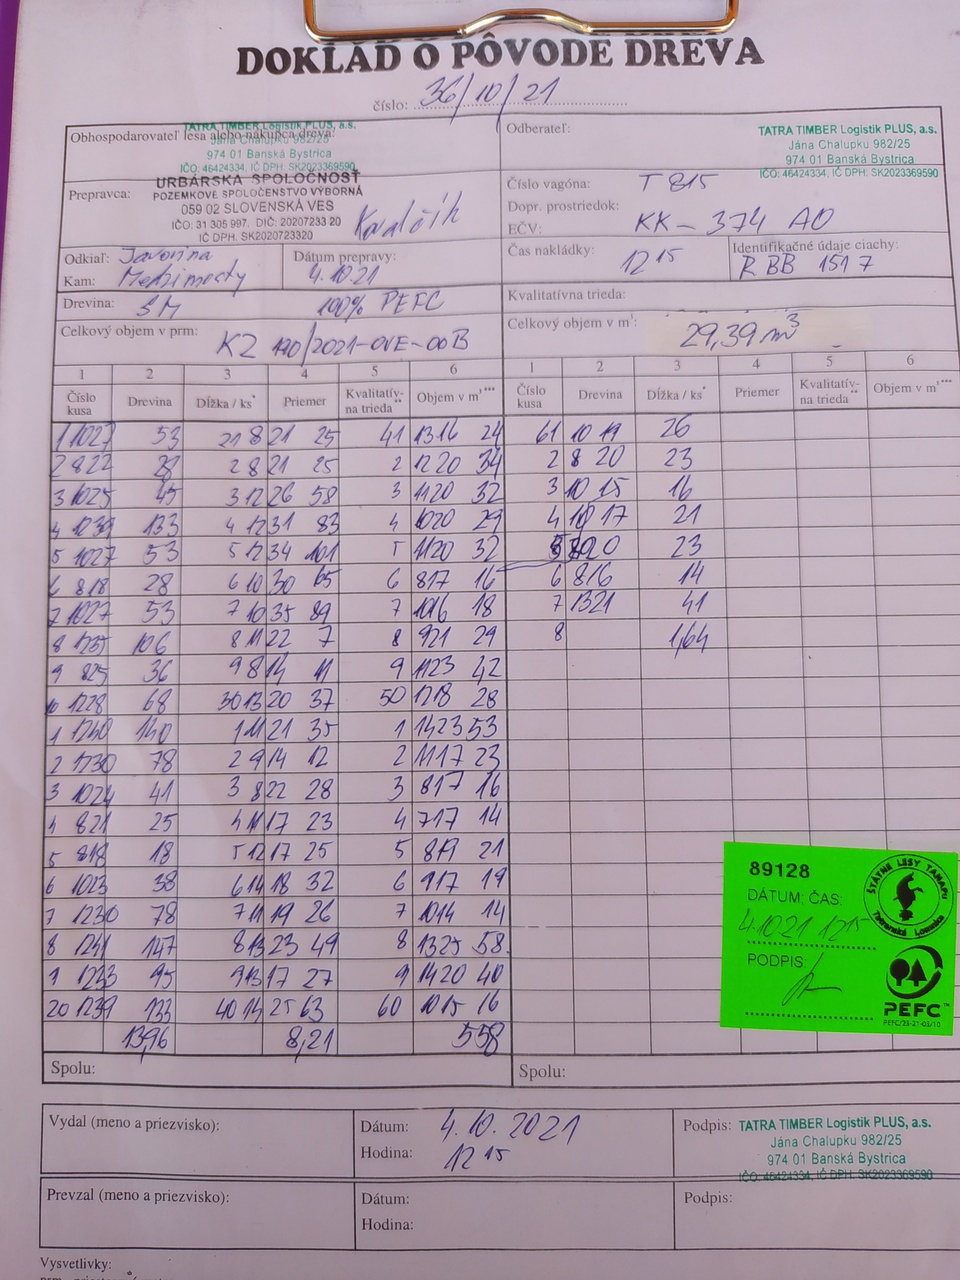 DOKLAD O PÔVODE DREVA
číslo: 36/10/21
Obhospodarovateľ lesa alebo nákupca dreva:
TATRA TIMBER Logistik PLUS, a.s.
Jána Chalupku 982/25
974 01 Banská Bystrica
IČO: 46424334, IČ DPH: SK2023369590
Odberateľ:
TATRA TIMBER Logistik PLUS, a.s.
Jána Chalupku 982/25
974 01 Banská Bystrica
IČO: 46424334, IČ DPH: SK2023369590
Prepravca:
URBÁRSKA SPOLOČNOSŤ
POZEMKOVÉ SPOLOČENSTVO VÝBORNÁ
059 02 SLOVENSKÁ VES
IČO: 31 305 997, DIČ: 20207233 20
IČ DPH: SK2020723320
Číslo vagóna: T 815
Dopr. prostriedok:
EČV: KK - 374 AO
Odkiaľ: Javorina
Kam:
Dátum prepravy:
4.10.21
Čas nakládky: 12 15
Identifikačné údaje ciachy:
R BB 1517
Drevina: SM 100% PEFC
Kvalitatívna trieda:
Celkový objem v prm: K2 190/2021-OVE-00B
Celkový objem v m³: 29,39 m³
1 2 3 4 5 6 1 2 3 4 5 6
Číslo kusa Drevina Dĺžka / ks* Priemer Kvalitatív- na trieda** Objem v m³*** Číslo kusa Drevina Dĺžka / ks* Priemer Kvalitatív- na trieda** Objem v m³***
1 1027 53 21 8 21 25 41 1316 24 61 10 19 26
2 822 2 8 21 25 2 1220 34 2 8 20 23
3 1025 45 3 12 26 58 3 1120 32 3 10 15 16
4 1239 133 4 12 31 83 4 1020 29 4 10 17 21
5 1027 53 5 12 34 101 5 1120 32 5 20 23
6 818 28 6 10 30 65 6 817 16 6 816 14
7 1027 53 7 10 35 89 7 1016 18 7 1321 41
8 1235 106 8 11 22 7 8 921 29 8 1,64
9 825 36 9 8 14 11 9 1123 42
10 1228 68 30 13 20 37 50 1218 28
1 1240 140 1 11 21 35 1 1423 53
2 1230 78 2 9 14 12 2 1117 23
3 1024 41 3 8 22 28 3 817 16
4 821 25 4 11 17 23 4 717 14
5 818 18 5 12 17 25 5 819 21
6 1023 38 6 14 18 32 6 917 19
7 1230 78 7 11 19 26 7 1014 14
8 1241 147 8 13 23 49 8 1325 58
9 1233 95 9 13 17 27 9 1420 40
20 1239 133 40 14 25 63 60 1015 16
13,96 8,21 5,58
Spolu: Spolu:
89128
DÁTUM, ČAS:
4.10.21 12 15
PODPIS:
ŠTÁTNE LESY TANAPU
Tatranská Lomnica
PEFC™
PEFC/23-21-03/10
Vydal (meno a priezvisko):
Dátum: 4.10.2021
Hodina: 12 15
Podpis:
TATRA TIMBER Logistik PLUS, a.s.
Jána Chalupku 982/25
974 01 Banská Bystrica
IČO: 46424334, IČ DPH: SK2023369590
Prevzal (meno a priezvisko):
Dátum:
Hodina:
Podpis:
Vysvetlivky: